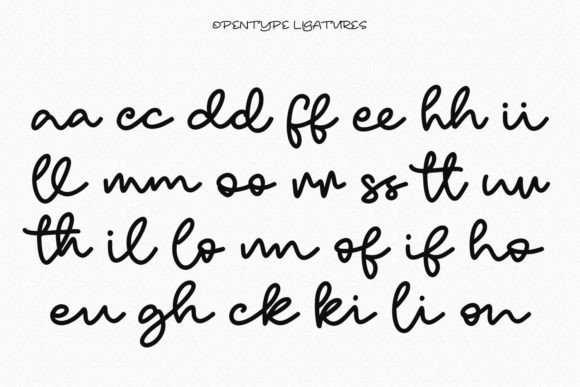 OPENTYPE LIGATURES
aa cc dd ff ee hh ii
ll mm oo rr ss tt uu
th il lo nn of if ho
eu gh ck ki li on